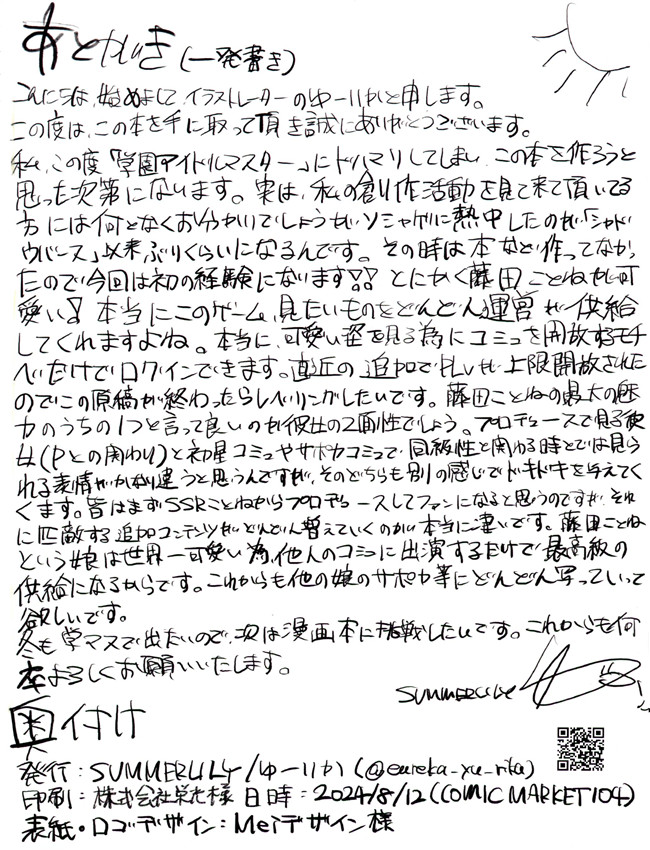 あとがき(一発書き)
こんにちは、始めまして、イラストレーターのゆーりかと申します。
この度は、この本を手に取って頂き誠にありがとうございます。
私、この度「学園アイドルマスター」にドハマリしてしまい、この本を作ろうと
思った次第になります。実は、私の創作活動を見て来て頂いてる
方には何となくお分かりでしょうがソシャゲに熱中したのが「シャド
ウバース」以来ぶりくらいになるんです。その時は本など作ってなかっ
たので今回は初の経験になります!! とにかく藤田ことねが可
愛い! 本当にこのゲーム、見たいものをどんどん運営が供給
してくれますよね。本当に、可愛い姿を見る為にコミュを開放するモチ
べだけでログインできます。直近の追加でPLvが上限開放された
のでこの原稿が終わったらレベリングしたいです。藤田ことねの最大の魅
力のうちの1つと言って良いのが彼女の2面性でしょう。プロデュースで見る彼
女(Pとの関わり)と初星コミュやサポカコミュで、同級生と関わる時とでは見ら
れる表情がかなり違うと思うんですが、そのどちらも別の感じでドキドキを与えてく
くます。皆はまずSSRことねからプロデュースしてファンになると思うのですが、それ
に匹敵する追加コンテンツがどんどん増えていくのが本当に凄いです。藤田ことね
という娘は世界一可愛い為、他人のコミュに出演するだけで最高級の
供給になるからです。これからも他の娘のサポカ等にどんどん写っていって
欲しいです。
冬も学マスで出たいので、次は漫画本に挑戦したいです。これからも何
卒よろしくお願いいたします。
SUMMERLILY
奥付け
発行:SUMMERLILY/ゆーりか(@eureka_yu_rika)
印刷:株式会社栄光様 日時:2024/8/12(COMIC MARKET104)
表紙・ロゴデザイン:Meiデザイン様